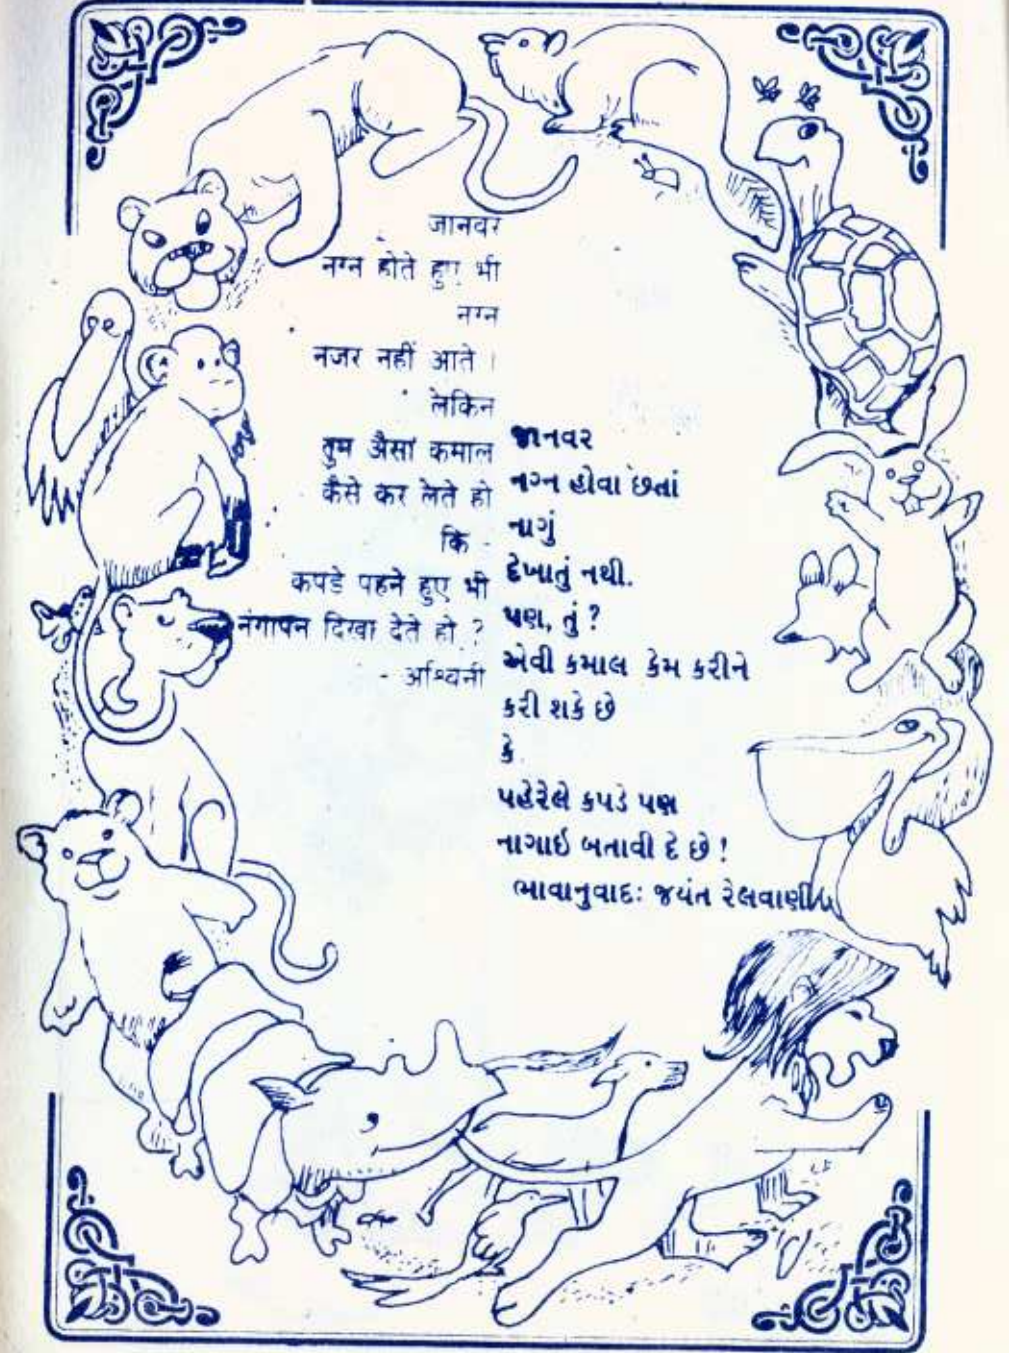 जानवर
नग्न होते हुए भी
नग्न
नजर नहीं आते ।
लेकिन
तुम ऐसा कमाल
कैसे कर लेते हो
कि -
कपडे पहने हुए भी
नंगापन दिखा देते हो ?
- अश्विनी
જાનવર
નગ્ન હોવા છતાં
નાગું
દેખાતું નથી.
પણ, તું ?
એવી કમાલ કેમ કરીને
કરી શકે છે
કે
પહેરેલે કપડે પણ
નાગાઇ બતાવી દે છે !
ભાવાનુવાદઃ જયંત રેલવાણી